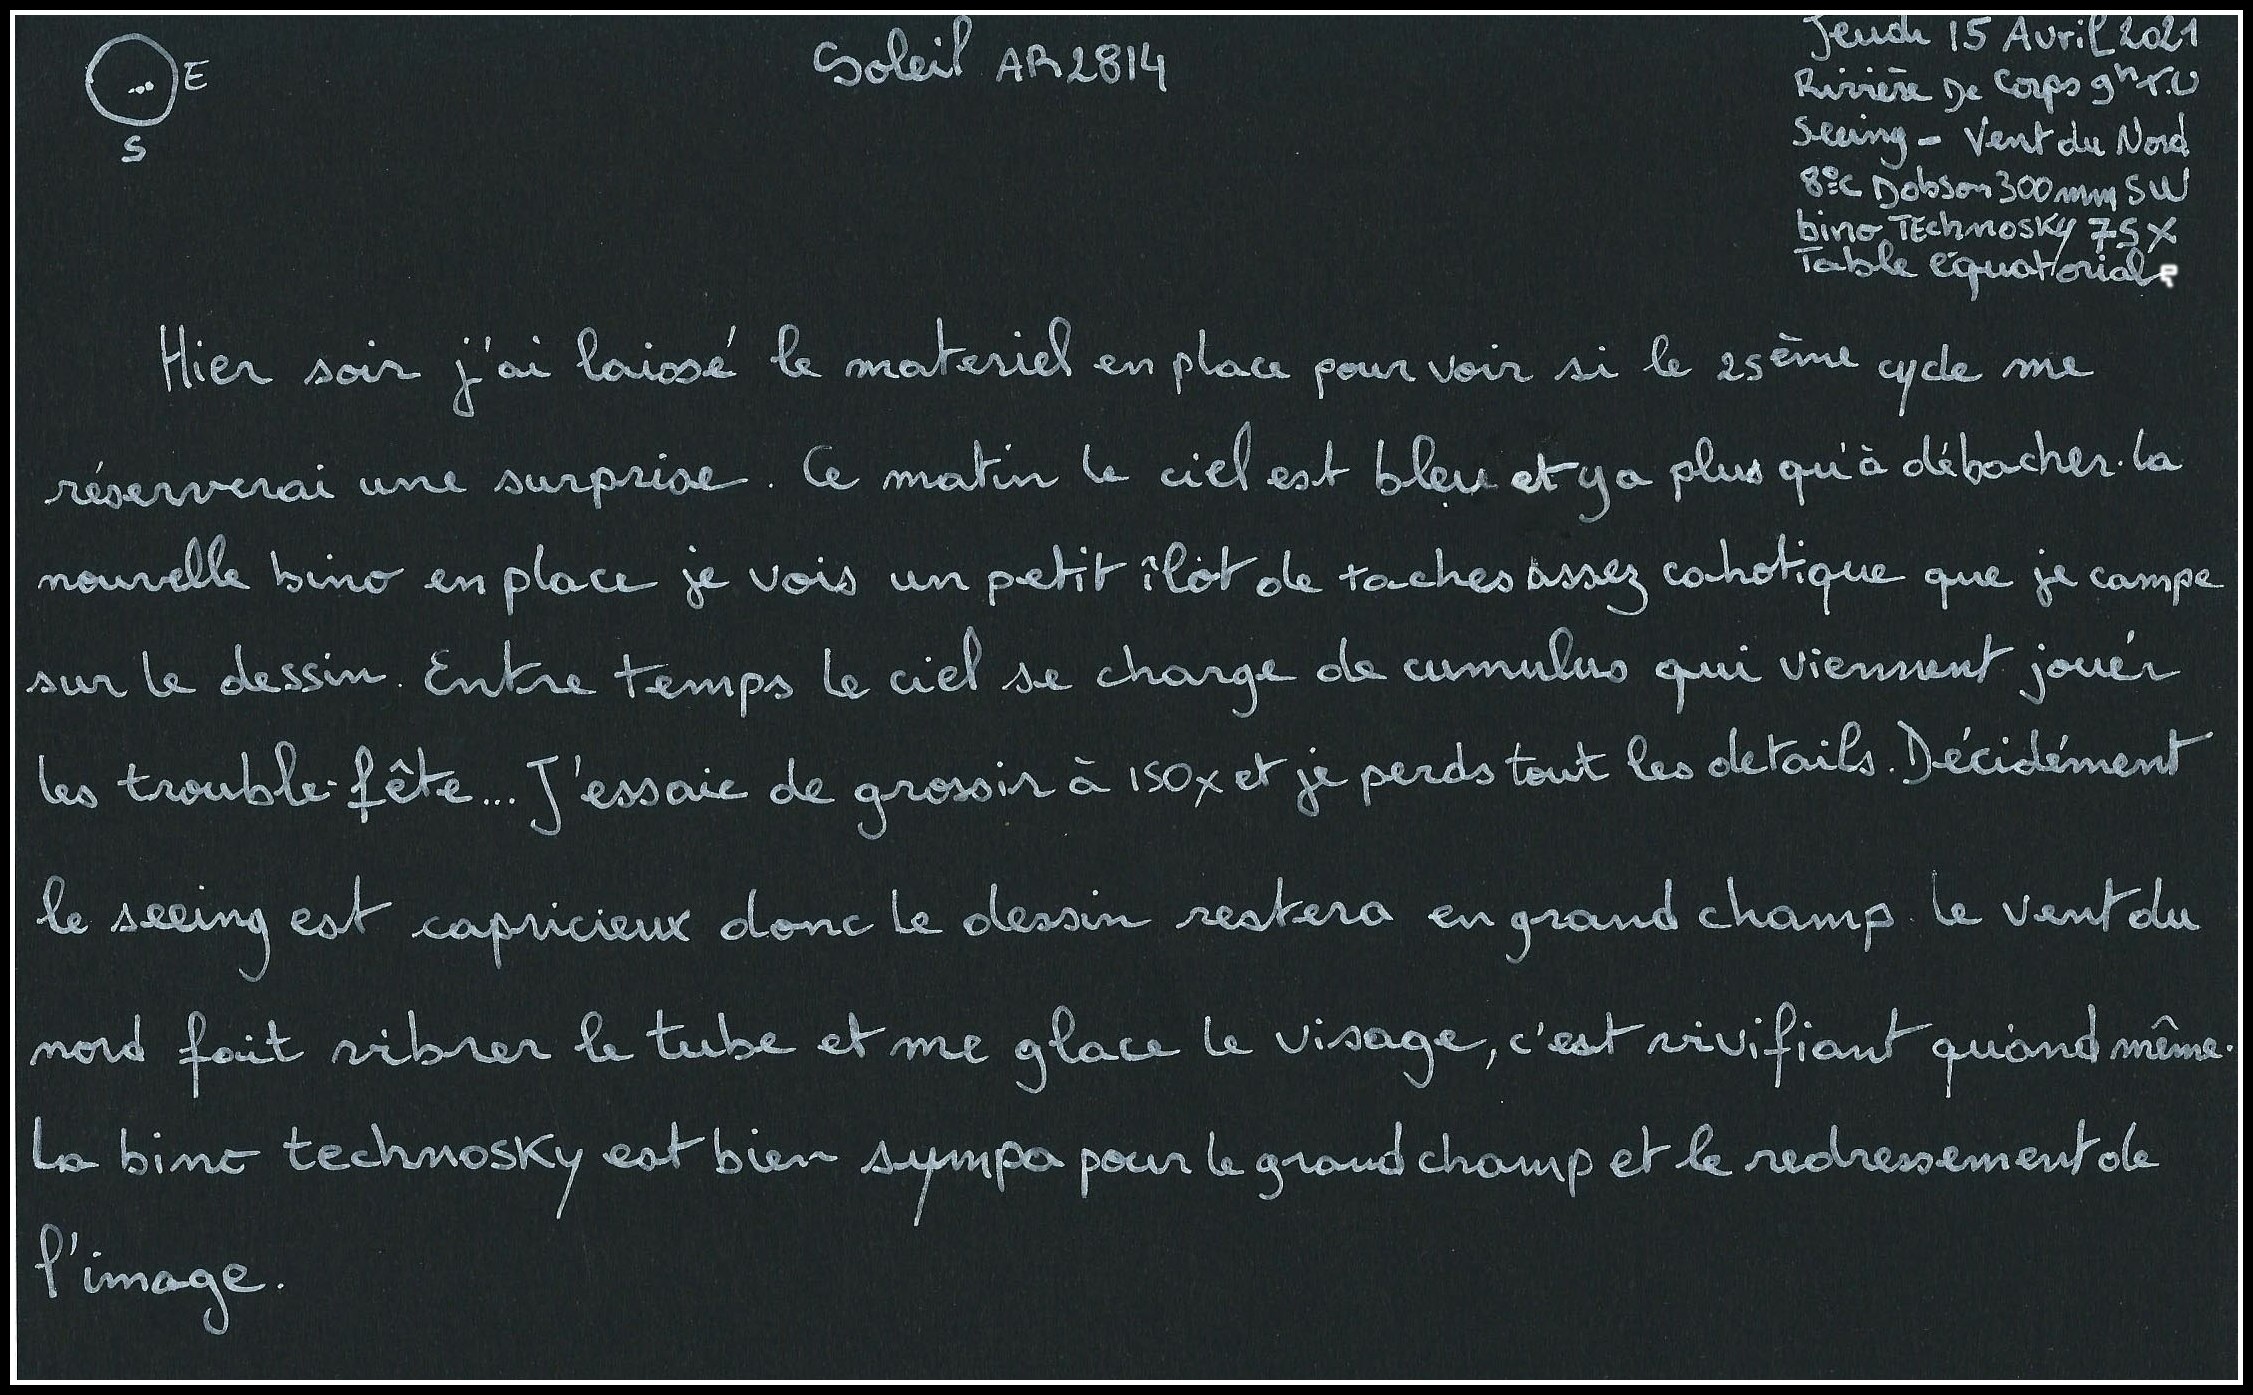 Soleil AR2814
E
S
Jeudi 15 Avril 2021
Rivière De Corps 9h T.U
Seeing - Vent du Nord
8°C Dobson 300mm SW
bino TEchnosky 75X
Table équatoriale
Hier soir j'ai laissé le materiel en place pour voir si le 25ème cycle me
réserverai une surprise. Ce matin le ciel est bleu et y a plus qu'à débacher. La
nouvelle bino en place je vois un petit îlôt de taches assez cahotique que je campe
sur le dessin. Entre temps le ciel se charge de cumulus qui viennent jouer
les trouble-fête... J'essaie de grossir à 150x et je perds tout les détails. Décidément
le seeing est capricieux donc le dessin restera en grand champ. Le vent du
nord fait vibrer le tube et me glace le visage, c'est vivifiant quand même.
La bino technosky est bien sympa pour le grand champ et le redressement de
l'image.